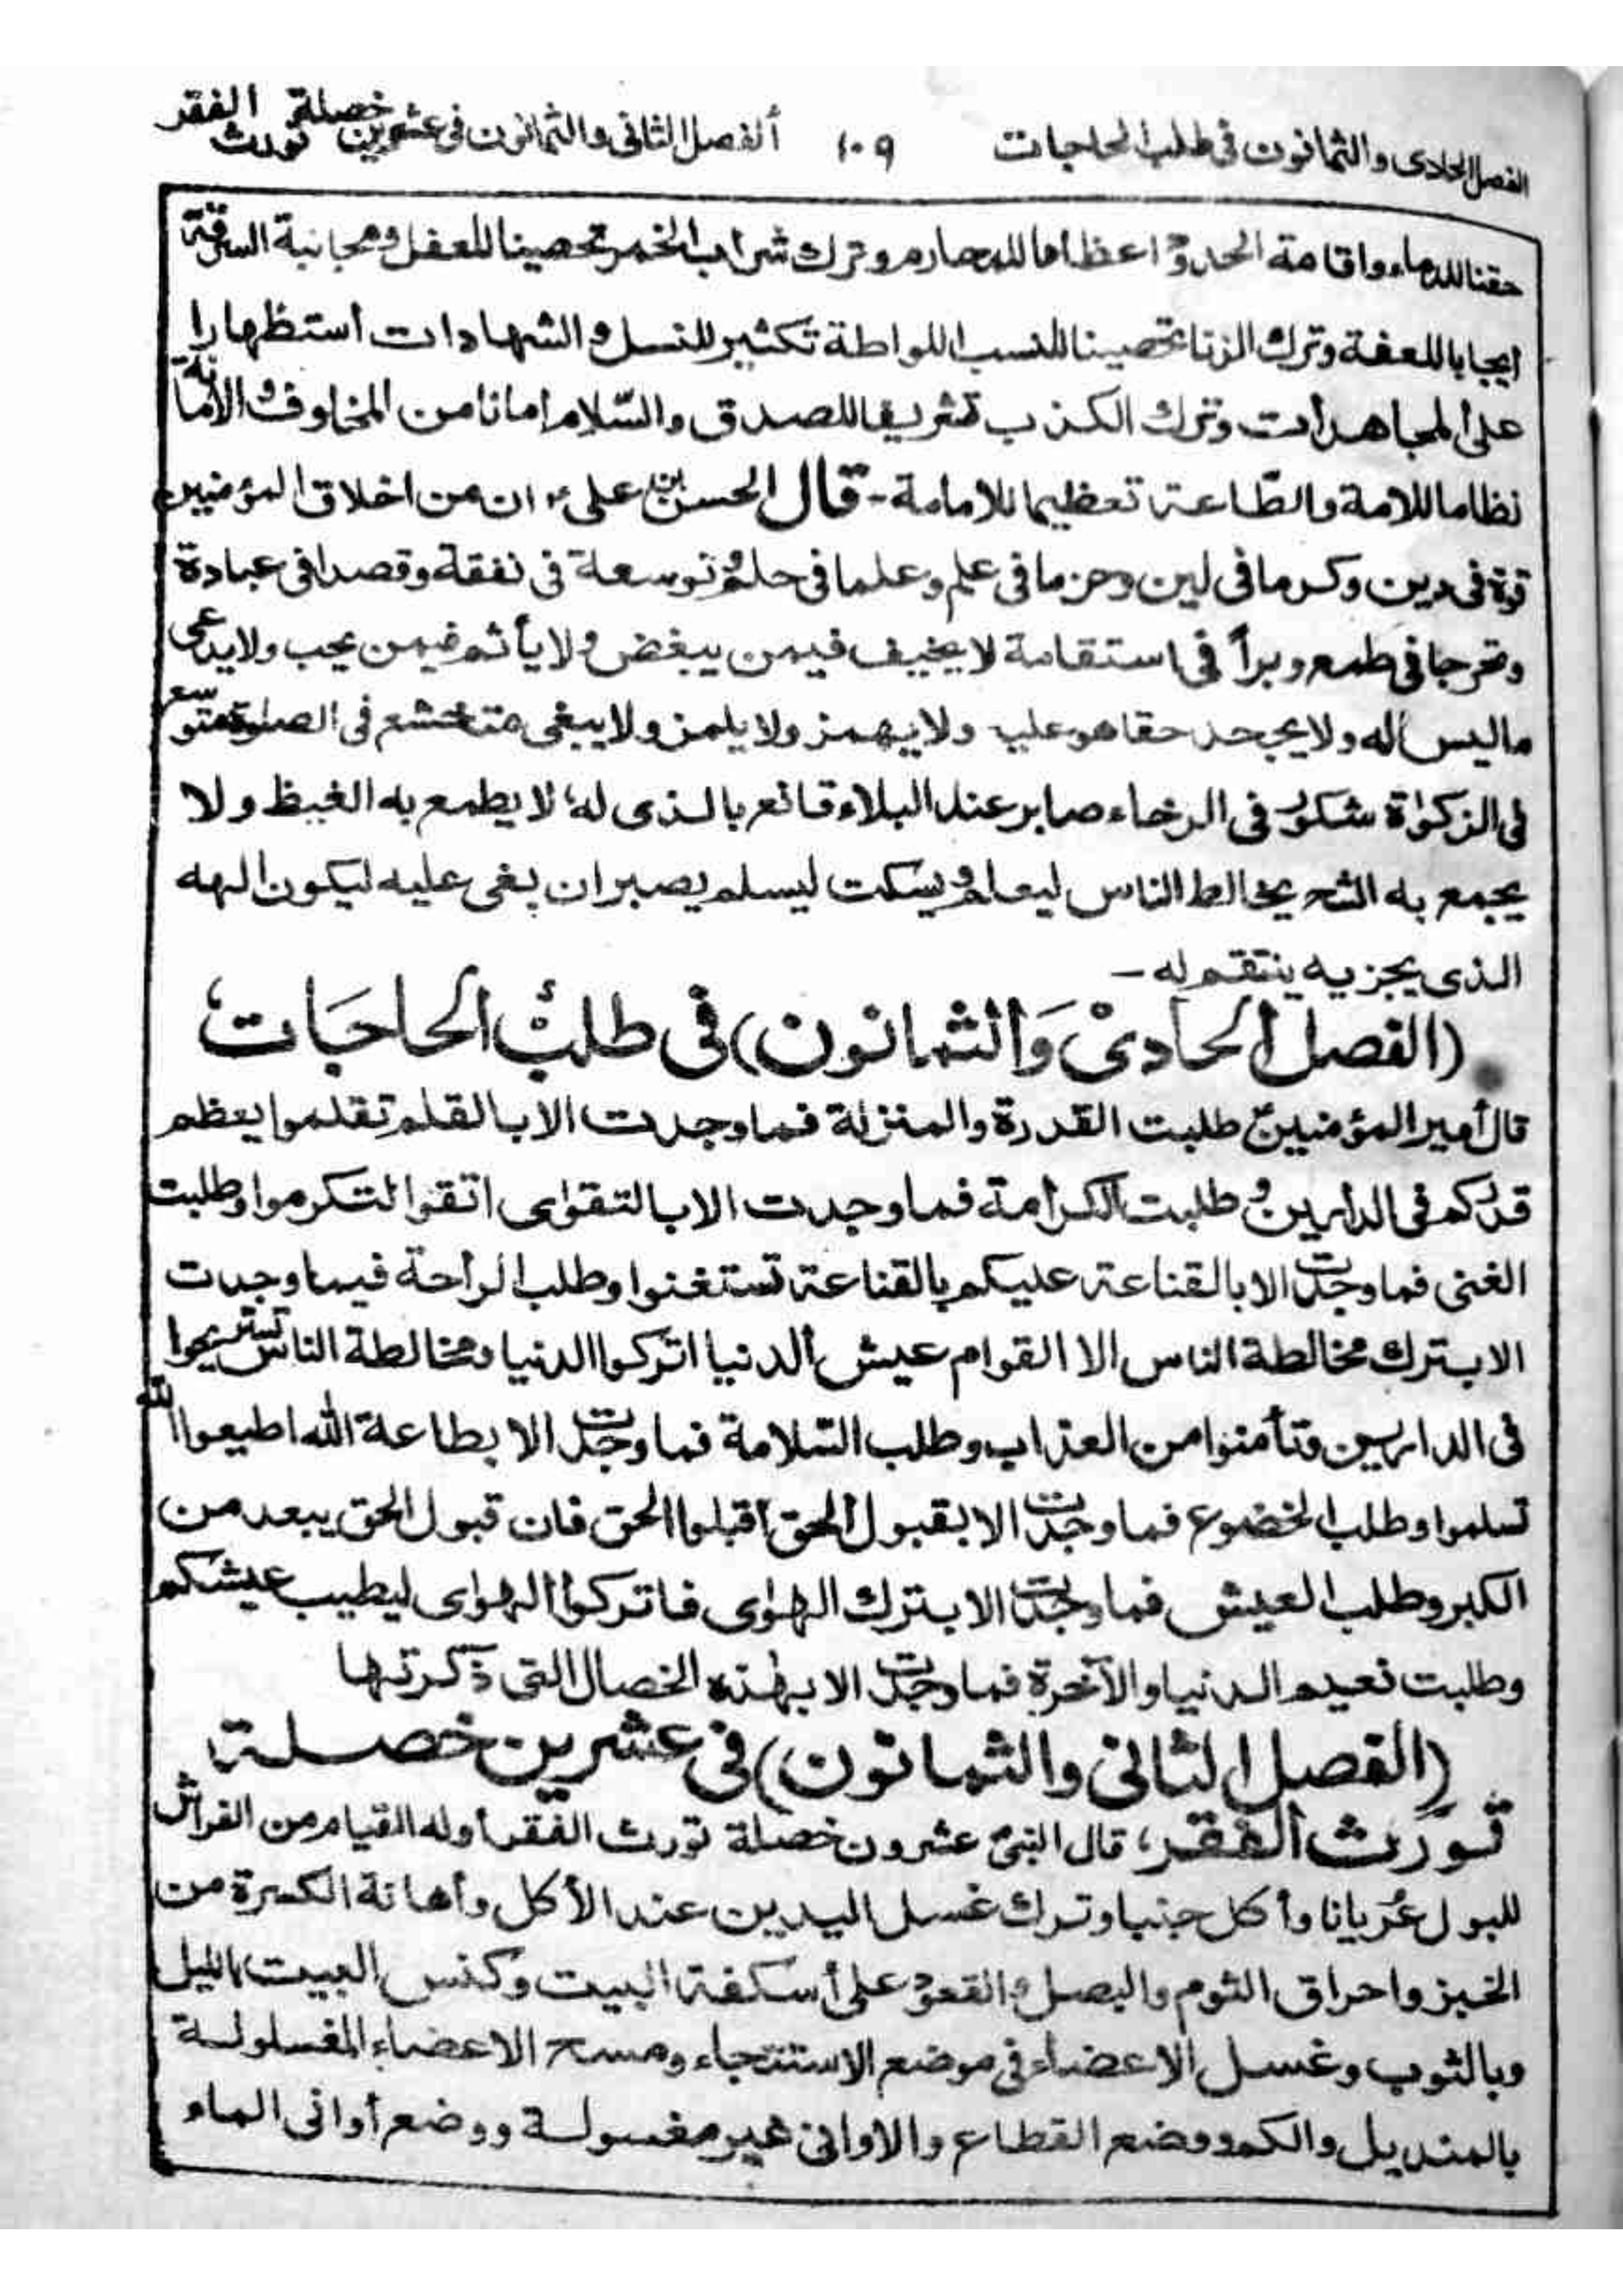 الفصل الحادى والثمانون فى طلب الحاجات ١٠٩ ألفصل الثانى والثمانون فى عشرين خصلة تورث الفقر
حقنا للدماء واقامة الحدود اعظاما للمحارم وترك شراب الخمر تحصينا للعقل ومجانبة السرقة
ايجابا للعفة وترك الزنا تحصينا للنسب اللواطة تكثير للنسل والشهادات استظهارا
على المجاهدات وترك الكذب تشريفا للصدق والسّلام امانا من المخاوف والأمانة
نظاما للامة والطّاعة تعظيما للامامة - قال الحسن بن علىؑ ان من اخلاق المؤمنين
قوة فى دين وكرما فى لين وحزما فى علم وعلما فى حلم وتوسعة فى نفقة وقصدا فى عبادة
وتحرجا فى طمع وبراً فى استقامة لا يخيف فيمن يبغض ولا يأثم فيمن يحب ولا يدعى
ما ليس له ولا يجحد حقا هو عليه ولا يهمز ولا يلمز ولا يبغى متخشع فى الصلوة متوسع
فى الزكوٰة شكور فى الرخاء صابر عند البلاء قانع بالذى له لا يطمع به الغيظ ولا
يجمع به الشح يخالط الناس ليعلم ويسكت ليسلم يصبر ان بغى عليه ليكون الهه
الذى يجزيه ينتقم له -
(الفصل الحادىْ وَالثمانون) فى طلبْ الحاجَات
قال أمير المؤمنينؑ طلبت القدرة والمنزلة فما وجدت الا بالقلم تقلموا يعظم
قدركم فى الدارين وطلبت الكرامة فما وجدت الا بالتقوٰى اتقوا لتكرموا وطلبت
الغنى فما وجدت الا بالقناعة عليكم بالقناعة تستغنوا وطلب الراحة فيما وجدت
الا بترك مخالطة الناس الا القوام عيش الدنيا اتركوا الدنيا ومخالطة الناس تستريحوا
فى الدارين وتأمنوا من العذاب وطلب السّلامة فما وجدت الا بطاعة الله اطيعوا الله
تسلموا وطلب الخضوع فما وجدت الا بقبول الحق اقبلوا الحق فان قبول الحق يبعد من
الكبر وطلب العيش فما وجدت الا بترك الهوٰى فاتركوا الهوٰى ليطيب عيشكم
وطلبت نعيم الدنيا والآخرة فما وجدت الا بهٰذه الخصال التى ذكرتها
(الفصل الثانى والثمانون) فى عشرين خصلة
تورث الفقر، قال النبىؐ عشرون خصلة تورث الفقر أوله القيام من الفراش
للبول عُريانا وأكل جنبا وترك غسل اليدين عند الأكل وأهانة الكسرة من
الخبز واحراق الثوم والبصل والقعود على أسكفة البيت وكنس البيت بالليل
وبالثوب وغسل الاعضاء فى موضع الاستنجاء ومسح الاعضاء المغسولة
بالمنديل والكم ووضع القطاع والاوانى غير مغسولة ووضع أوانى الماء